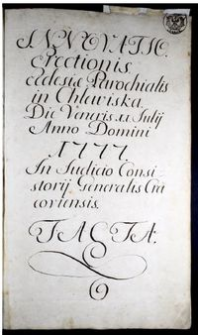 INNOVATIO
Erectionis
Ecclesiæ Parochialis
in Chlewiska
Die Veneris 11 Julij
Anno Domini
1777
In Judicio Consi-
storij Generalis Cra
coviensis
FACTA.